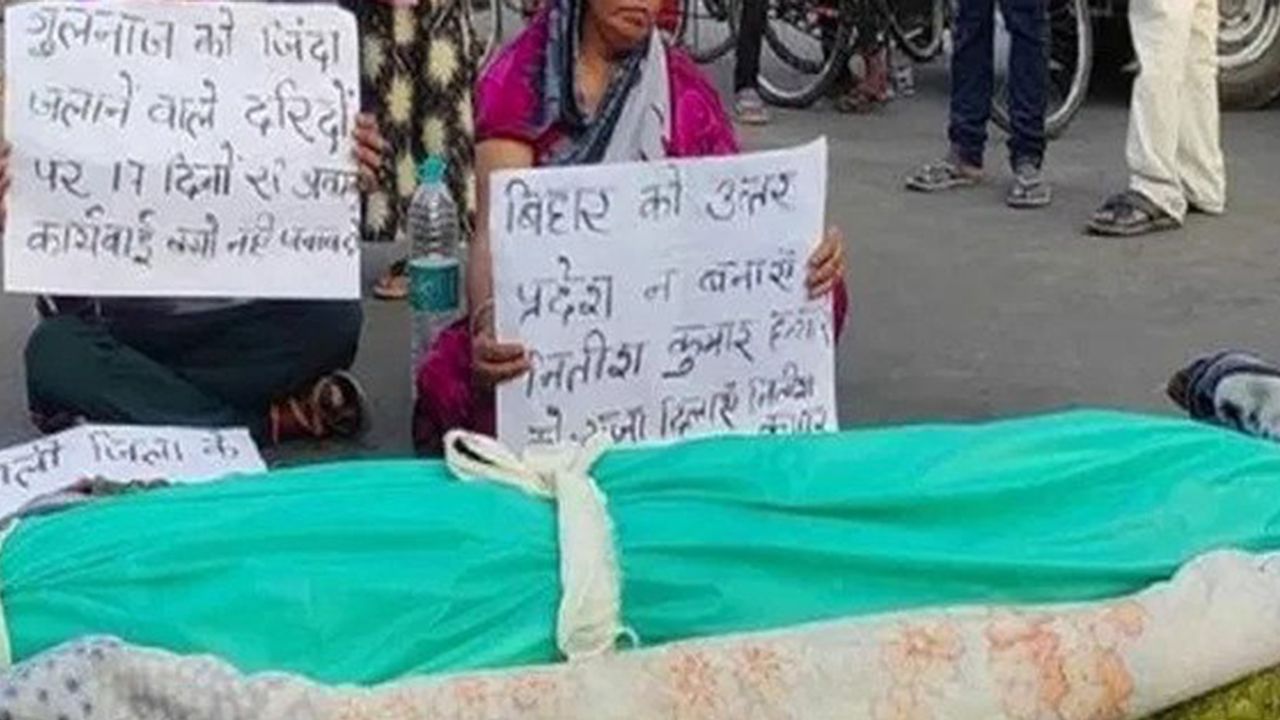 गुलनाज को जिंदा
जलाने वाले दरिदों
पर 17 दिनों से
कार्यवाई क्यो नही
बिहार को उत्तर
प्रदेश न बनाएं
नितीश कुमार
को सजा दिलाएं नितीश
कुमार
जिला के